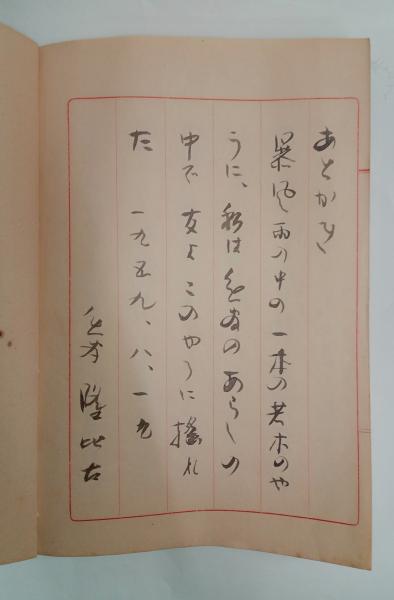 あとがき
暴風雨の中の一本の若木のや
うに、私は のあらしの
中で 友よ このやうに揺れ
た 一九五九、八、一九
隆比古